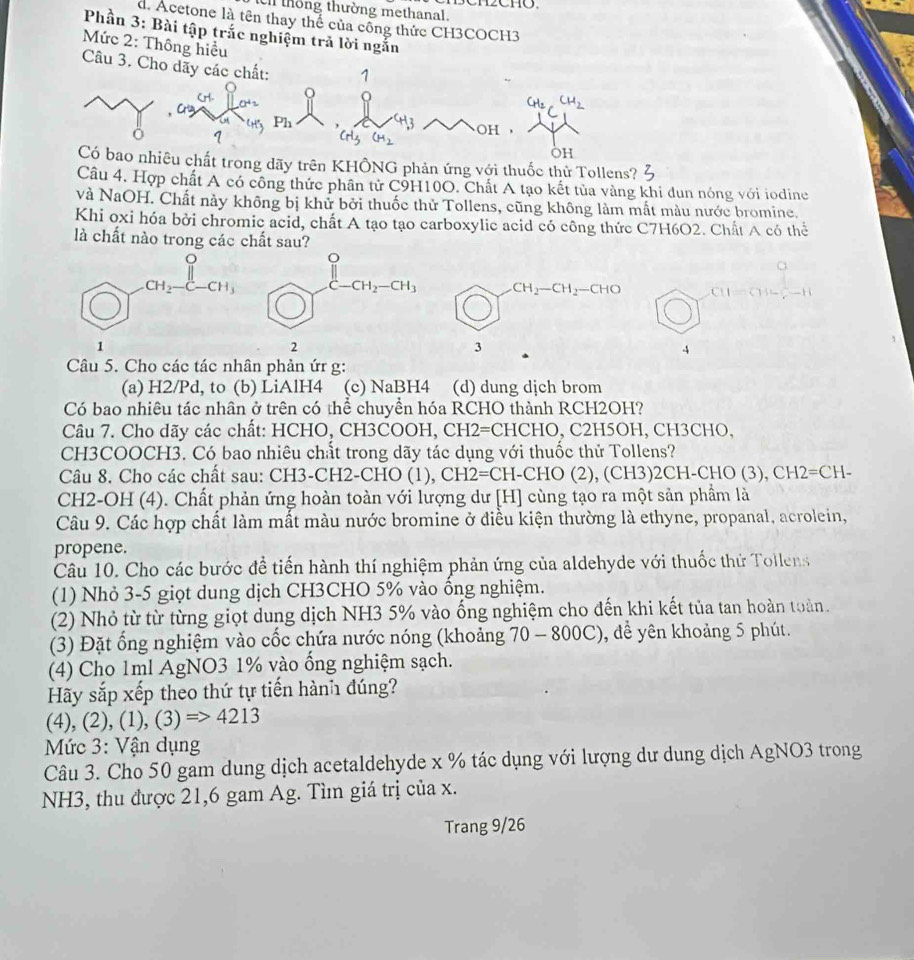 thông thường methanal.
d. Acetone là tên thay thế của công thức CH3COCH3
Phần 3: Bài tập trắc nghiệm trả lời ngắn
Mức 2: Thông hiểu
Câu 3. Cho dãy các chất:
1
O CH2 O O CH2 CH2
CH3 CH3 Ph , C CH3 OH , C
O CH3 CH2 OH
Có bao nhiêu chất trong dãy trên KHÔNG phản ứng với thuốc thử Tollens? 5
Câu 4. Hợp chất A có công thức phân tử C9H10O. Chất A tạo kết tủa vàng khi đun nóng với iodine
và NaOH. Chất này không bị khử bởi thuốc thử Tollens, cũng không làm mất màu nước bromine.
Khi oxi hóa bởi chromic acid, chất A tạo tạo carboxylic acid có công thức C7H6O2. Chất A có thể
là chất nào trong các chất sau?
O O O
CH2—C—CH3 C—CH2—CH3 CH2—CH2—CHO
1 2 3 4
Câu 5. Cho các tác nhân phản ứr g:
(a) H2/Pd, to (b) LiAlH4 (c) NaBH4 (d) dung dịch brom
Có bao nhiêu tác nhân ở trên có thể chuyển hóa RCHO thành RCH2OH?
Câu 7. Cho dãy các chất: HCHO, CH3COOH, CH2=CHCHO, C2H5OH, CH3CHO,
CH3COOCH3. Có bao nhiêu chất trong dãy tác dụng với thuốc thử Tollens?
Câu 8. Cho các chất sau: CH3-CH2-CHO (1), CH2=CH-CHO (2), (CH3)2CH-CHO (3), CH2=CH-
CH2-OH (4). Chất phản ứng hoàn toàn với lượng dư [H] cùng tạo ra một sản phẩm là
Câu 9. Các hợp chất làm mất màu nước bromine ở điều kiện thường là ethyne, propanal, acrolein,
propene.
Câu 10. Cho các bước để tiến hành thí nghiệm phản ứng của aldehyde với thuốc thử Tollens
(1) Nhỏ 3-5 giọt dung dịch CH3CHO 5% vào ống nghiệm.
(2) Nhỏ từ từ từng giọt dung dịch NH3 5% vào ống nghiệm cho đến khi kết tủa tan hoàn toàn.
(3) Đặt ống nghiệm vào cốc chứa nước nóng (khoảng 70 – 800C), để yên khoảng 5 phút.
(4) Cho 1ml AgNO3 1% vào ống nghiệm sạch.
Hãy sắp xếp theo thứ tự tiến hành đúng?
(4), (2), (1), (3) => 4213
Mức 3: Vận dụng
Câu 3. Cho 50 gam dung dịch acetaldehyde x % tác dụng với lượng dư dung dịch AgNO3 trong
NH3, thu được 21,6 gam Ag. Tìm giá trị của x.
Trang 9/26